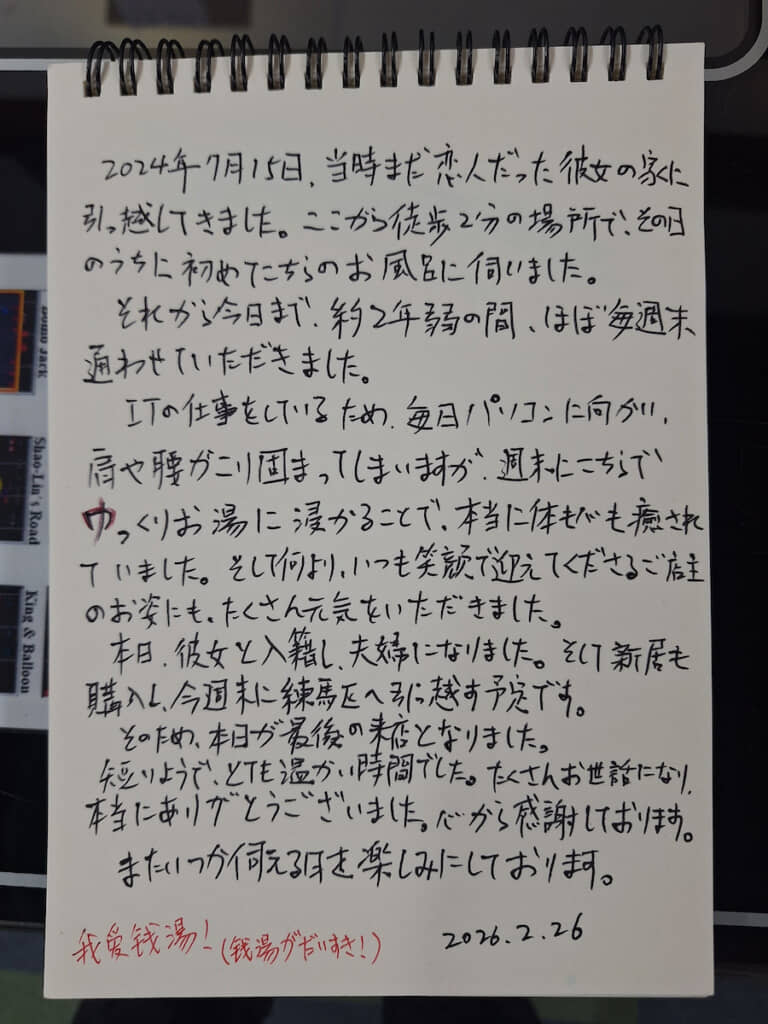 2024年7月15日、当時まだ恋人だった彼女の家に
引っ越してきました。ここから徒歩2分の場所で、その日
のうちに初めてこちらのお風呂に伺いました。
それから今日まで、約2年弱の間、ほぼ毎週末
通わせていただきました。
ITの仕事をしているため、毎日パソコンに向かい、
肩や腰がこり固まってしまいますが、週末にこちらで
ゆっくりお湯に浸かることで、本当に体も心も癒され
ていました。そして何より、いつも笑顔で迎えてくださるご店主
のお姿にも、たくさん元気をいただきました。
本日、彼女と入籍し、夫婦になりました。そして新居も
購入し、今週末に練馬区へ引っ越す予定です。
そのため、本日が最後の来店となりました。
短いようで、とても温かい時間でした。たくさんお世話になり、
本当にありがとうございました。心から感謝しております。
またいつか伺える日を楽しみにしております。
我爱钱湯！(钱湯がだいすき！)
2026.2.26
Bomb Jack
Shao-Lin's Road
King & Balloon